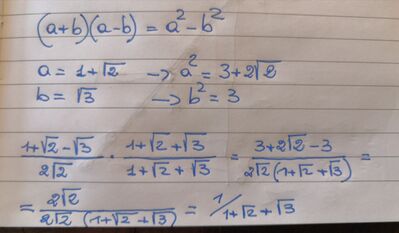 (a+b)(a-b) = a²-b²
a = 1+√2 → a² = 3+2√2
b = √3 → b² = 3
(1+√2-√3)/(2√2) · (1+√2+√3)/(1+√2+√3) = (3+2√2-3)/(2√2(1+√2+√3)) =
= (2√2)/(2√2(1+√2+√3)) = 1/(1+√2+√3)